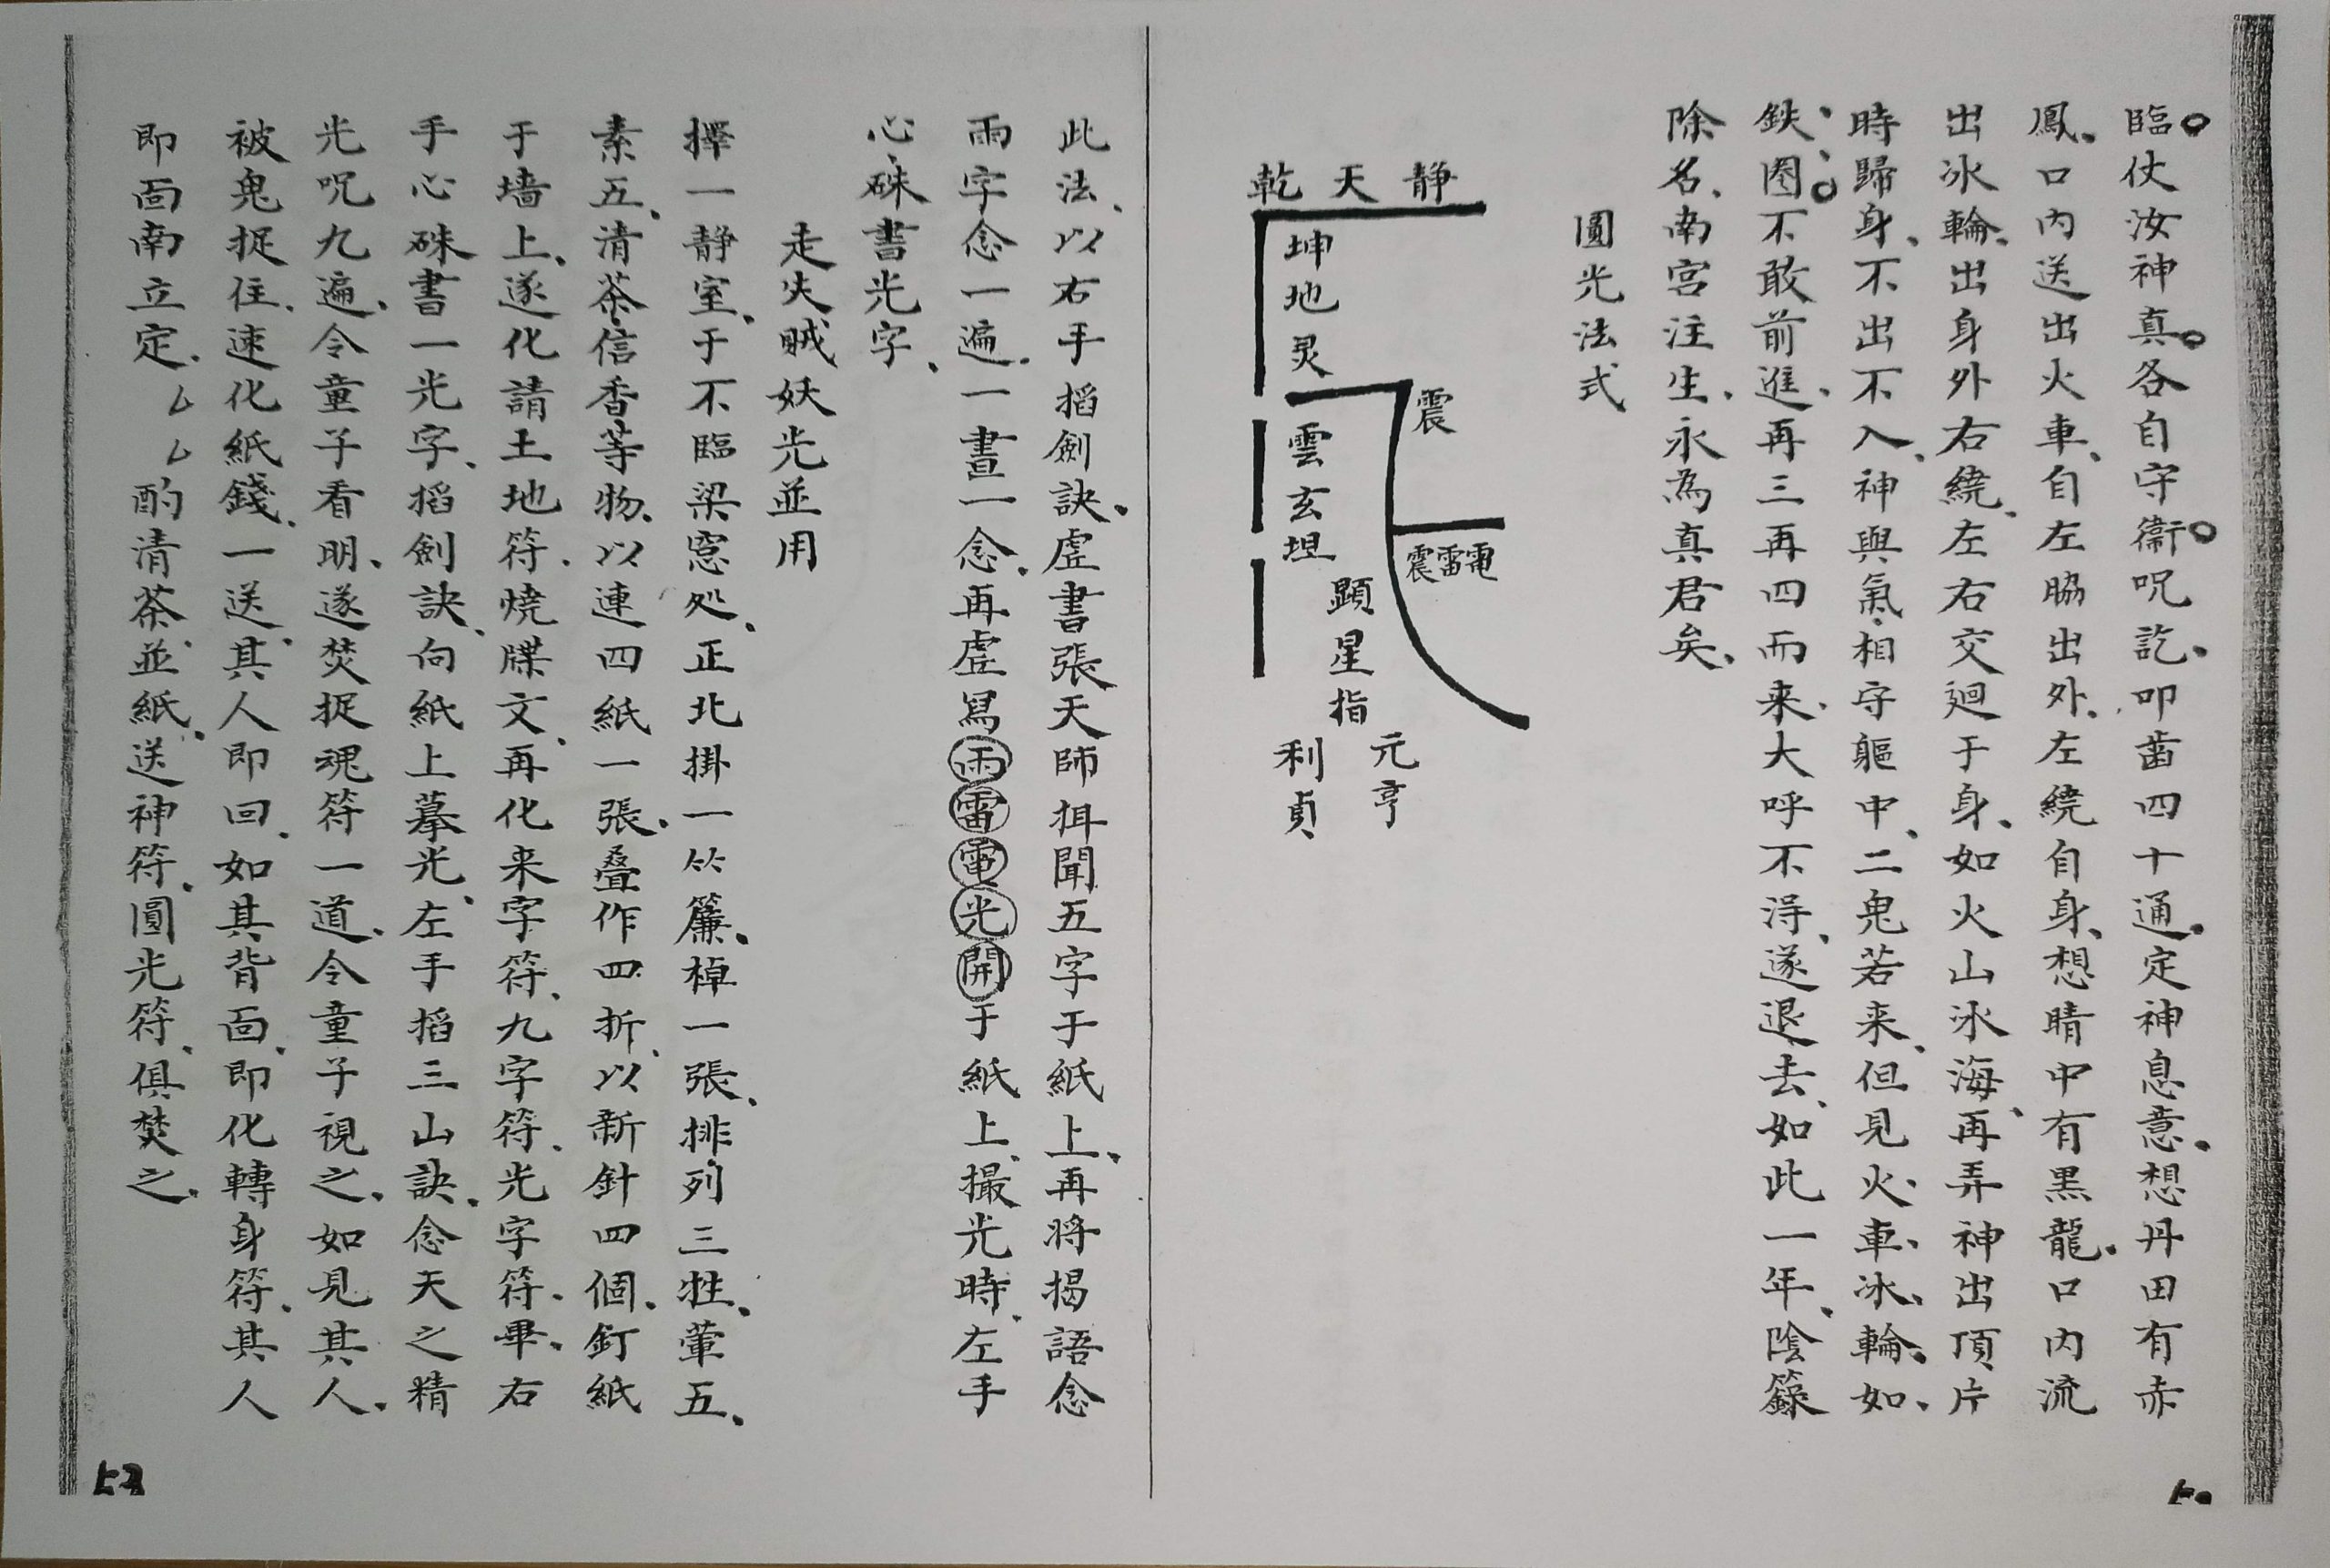 臨。仗汝神真。各自守衛。呪訖、叩齒四十通、定神息意、想丹田有赤
鳳、口内送出火車、自左脇出外、左繞自身、想腈中有黒龍、口内流
出冰輪、出身外右繞、左右交廻于身、如火山冰海、再弄神出頂片
時歸身、不出不入、神與氣相守軀中、二鬼若来、但見火車、冰輪、如
鉄圈。不敢前進、再三再四而来、大呼不淂、遂退去、如此一年、陰籙
除名、南宮注生、永為真君矣、
圓光法式
乾天静
坤地灵
震
雲玄坦
震雷電
顕星指
元亨
利貞
此法、以右手搯劍訣、虛書張天師挕聞五字于紙上、再将揭語念
雨字念一遍、一書一念、再虛冩雨雷電光開于紙上、撮光時、左手
心硃書光字、
走失賊妖光並用
擇一静室、于不臨梁窓処、正北掛一竹簾、棹一張、排列三牲、葷五、
素五、清茶、信香等物、以連四紙一張、叠作四折、以新針四個、釘紙
于墙上、遂化請土地符、燒牒文、再化来字符、九字符、光字符、畢、右
手心硃書一光字、搯劍訣、向紙上摹光、左手搯三山訣、念天之精
光呪九遍、令童子看明、遂焚捉魂符一道、令童子視之、如見其人、
被鬼捉住、速化紙錢、一送、其人即回、如其背面、即化轉身符、其人
即面南立定、 酌清茶、並紙、送神符、圓光符、俱焚之、